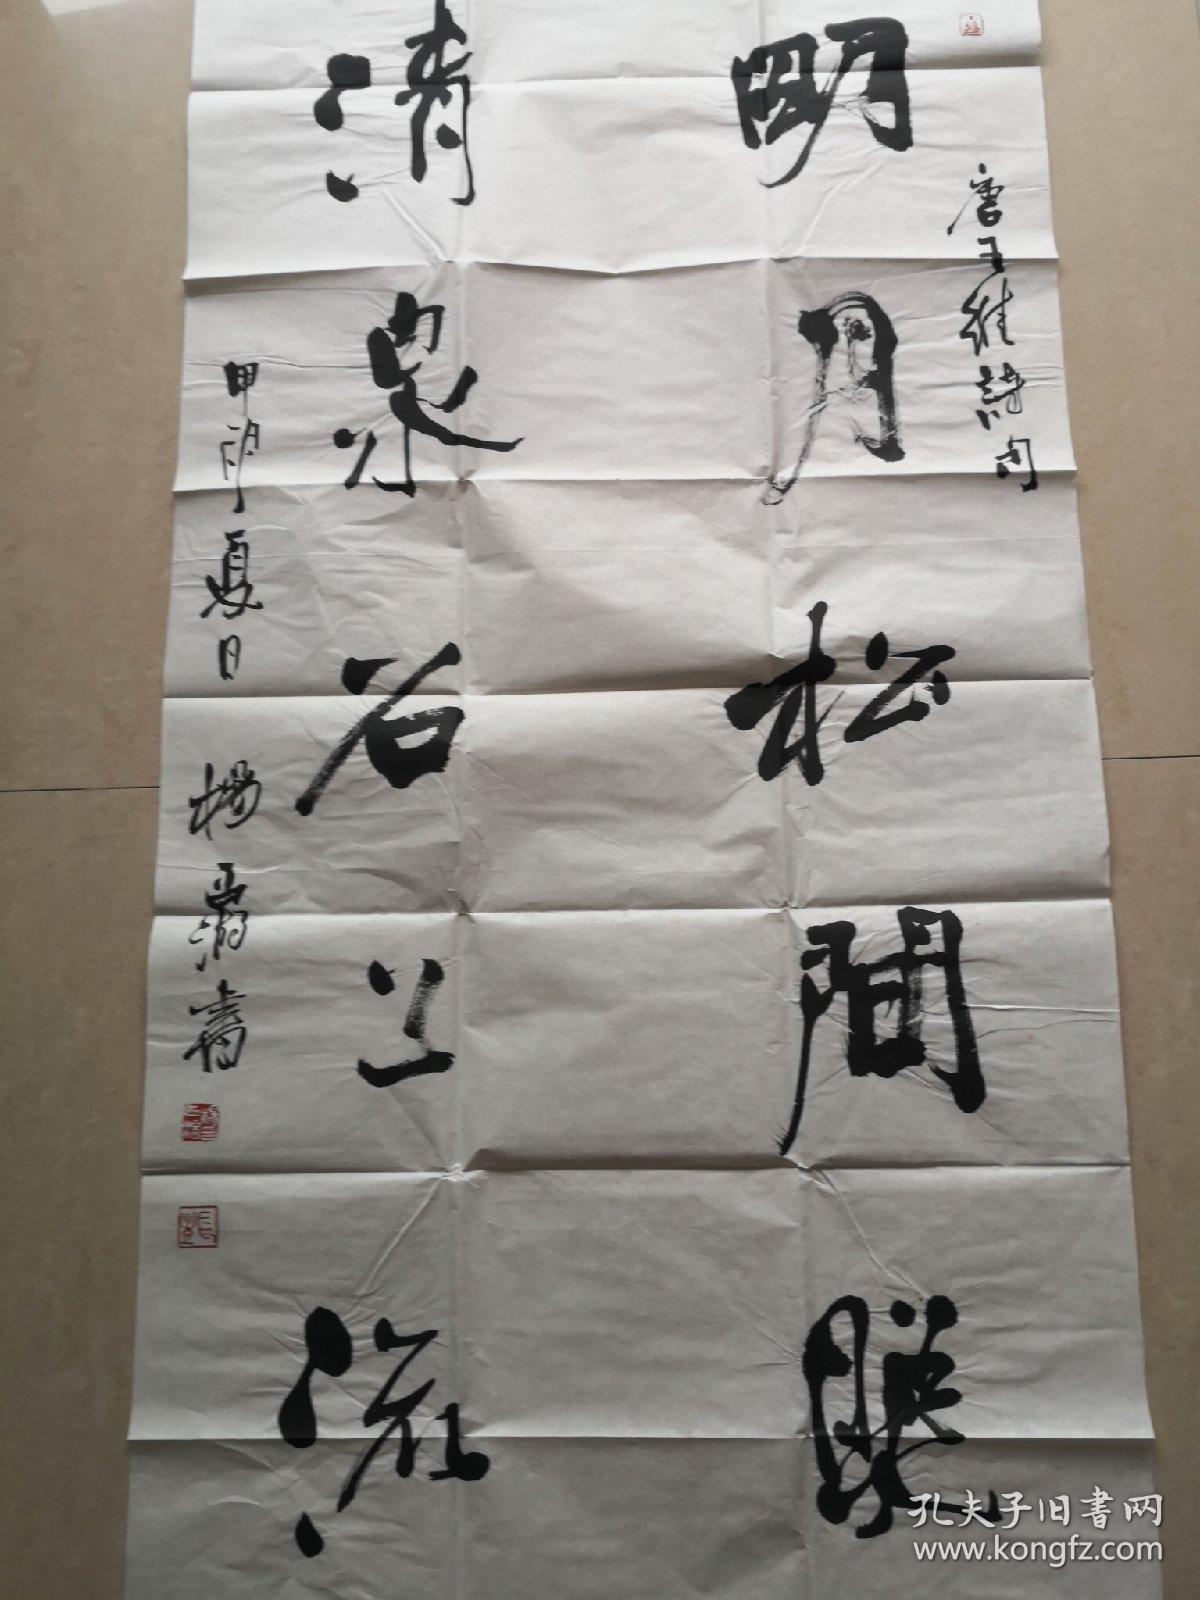 唐王維詩句
明月松間照
清泉石上流
甲申夏日 楊書
孔夫子旧书网
www.kongfz.com